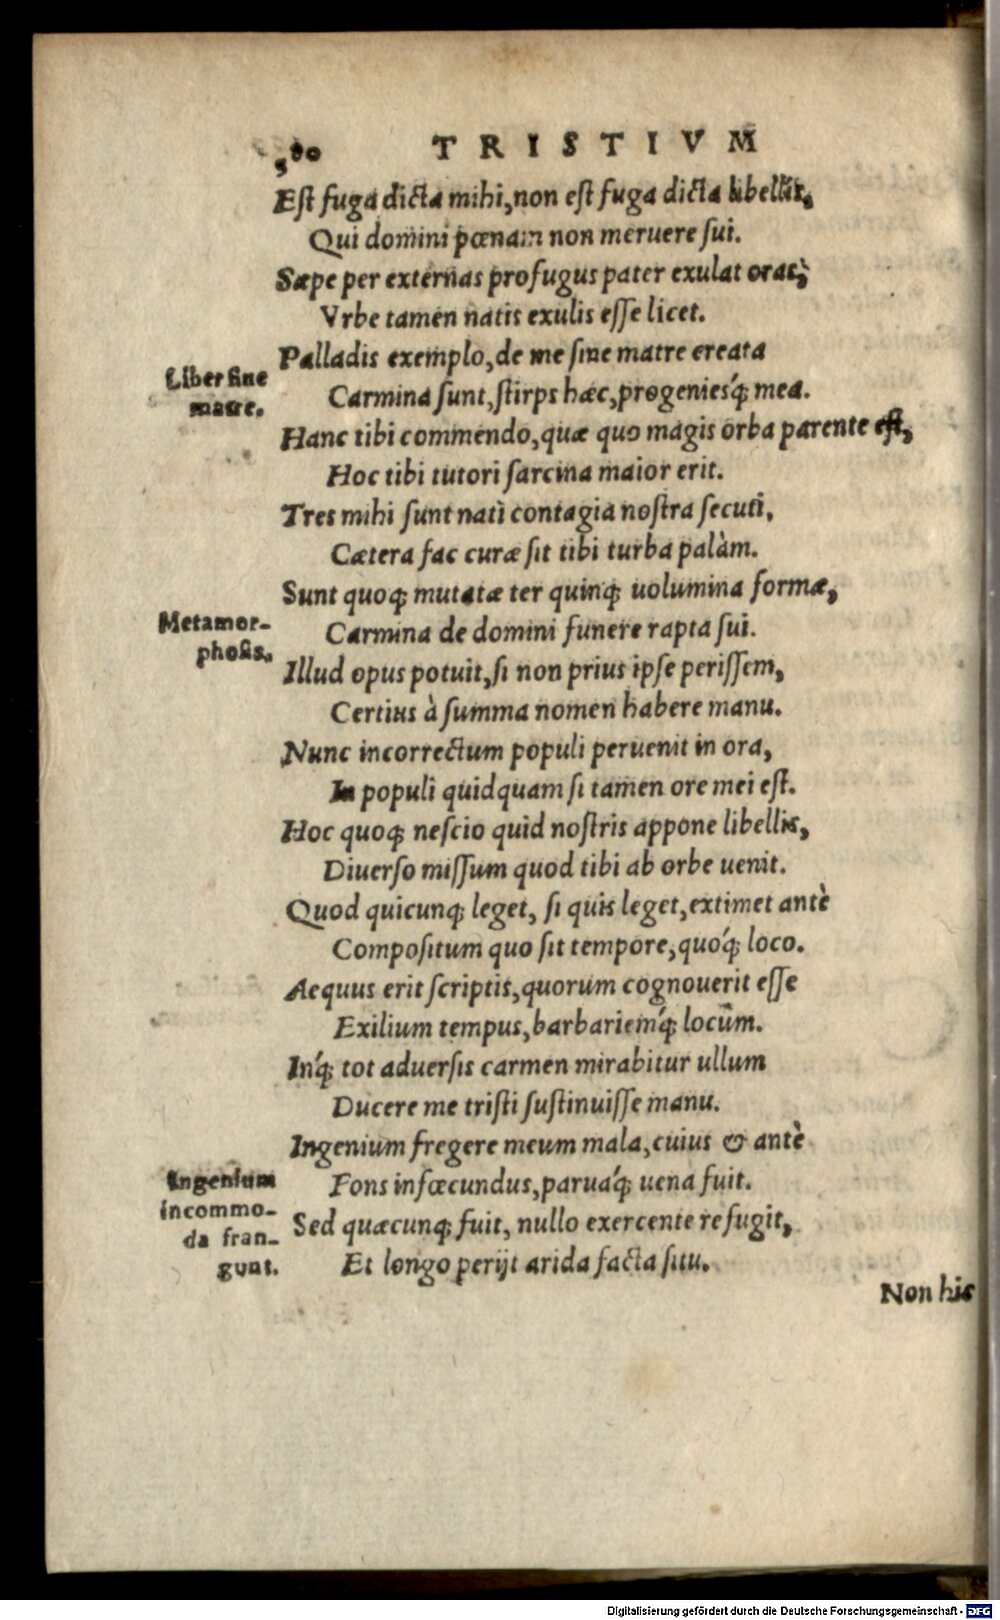 580 TRISTIVM
Est fuga dicta mihi, non est fuga dicta libellis,
Qui domini pœnam non meruere sui.
Sæpe per externas profugus pater exulat oras,
Vrbe tamen natis exulis esse licet.
Palladis exemplo, de me sine matre creata
Liber sine
matre.
Carmina sunt, stirps hæc, progeniesq́; mea.
Hanc tibi commendo, quæ quo magis orba parente est,
Hoc tibi tutori sarcina maior erit.
Tres mihi sunt nati contagia nostra secuti,
Cætera fac curæ sit tibi turba palàm.
Sunt quoq; mutatæ ter quinq; uolumina formæ,
Metamor-
phosis.
Carmina de domini funere rapta sui.
Illud opus potuit, si non prius ipse perissem,
Certius à summa nomen habere manu.
Nunc incorrectum populi peruenit in ora,
In populi quidquam si tamen ore mei est.
Hoc quoq; nescio quid nostris appone libellis,
Diuerso missum quod tibi ab orbe uenit.
Quod quicunq; leget, si quis leget, extimet antè
Compositum quo sit tempore, quóq; loco.
Aequus erit scriptis, quorum cognouerit esse
Exilium tempus, barbariemq́; locum.
Inq́; tot aduersis carmen mirabitur ullum
Ducere me tristi sustinuisse manu.
Ingenium fregere meum mala, cuius & antè
Ingenium
incommo-
da fran-
gunt.
Fons infœcundus, paruáq; uena fuit.
Sed quæcunq; fuit, nullo exercente refugit,
Et longo perijt arida facta situ.
Non his
Digitalisierung gefördert durch die Deutsche Forschungsgemeinschaft - DFG